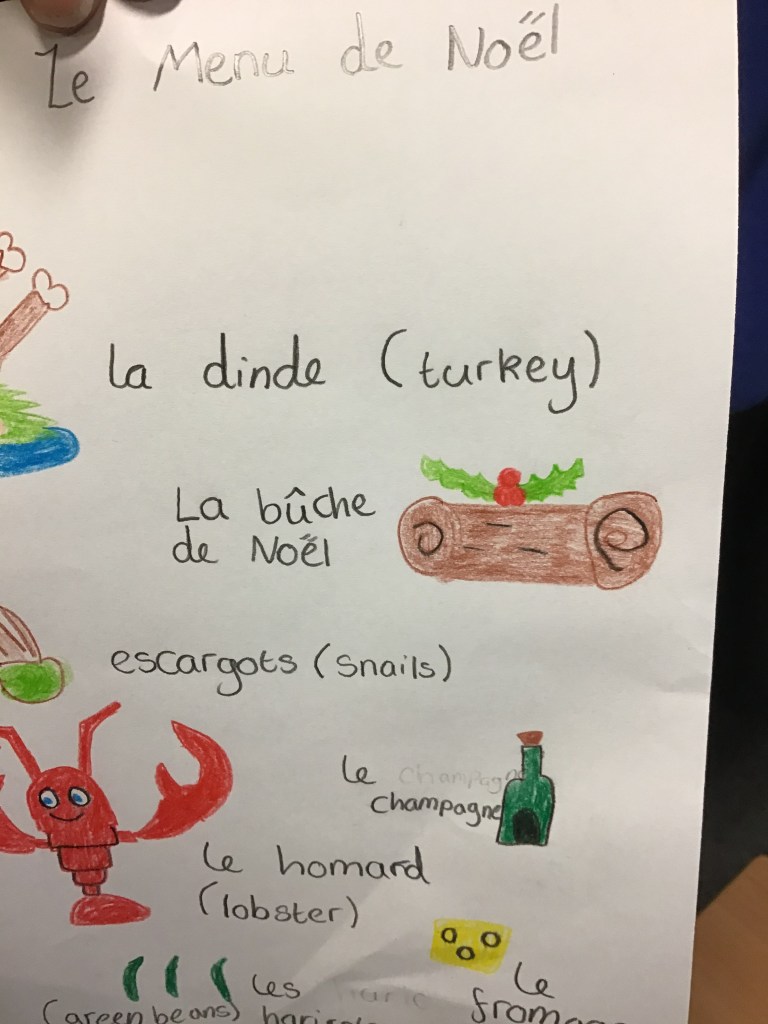 Le Menu de Noël
la dinde (turkey)
La bûche
de Noël
escargots (snails)
le champagne
champagne
le homard
(lobster)
les
(green beans)
le